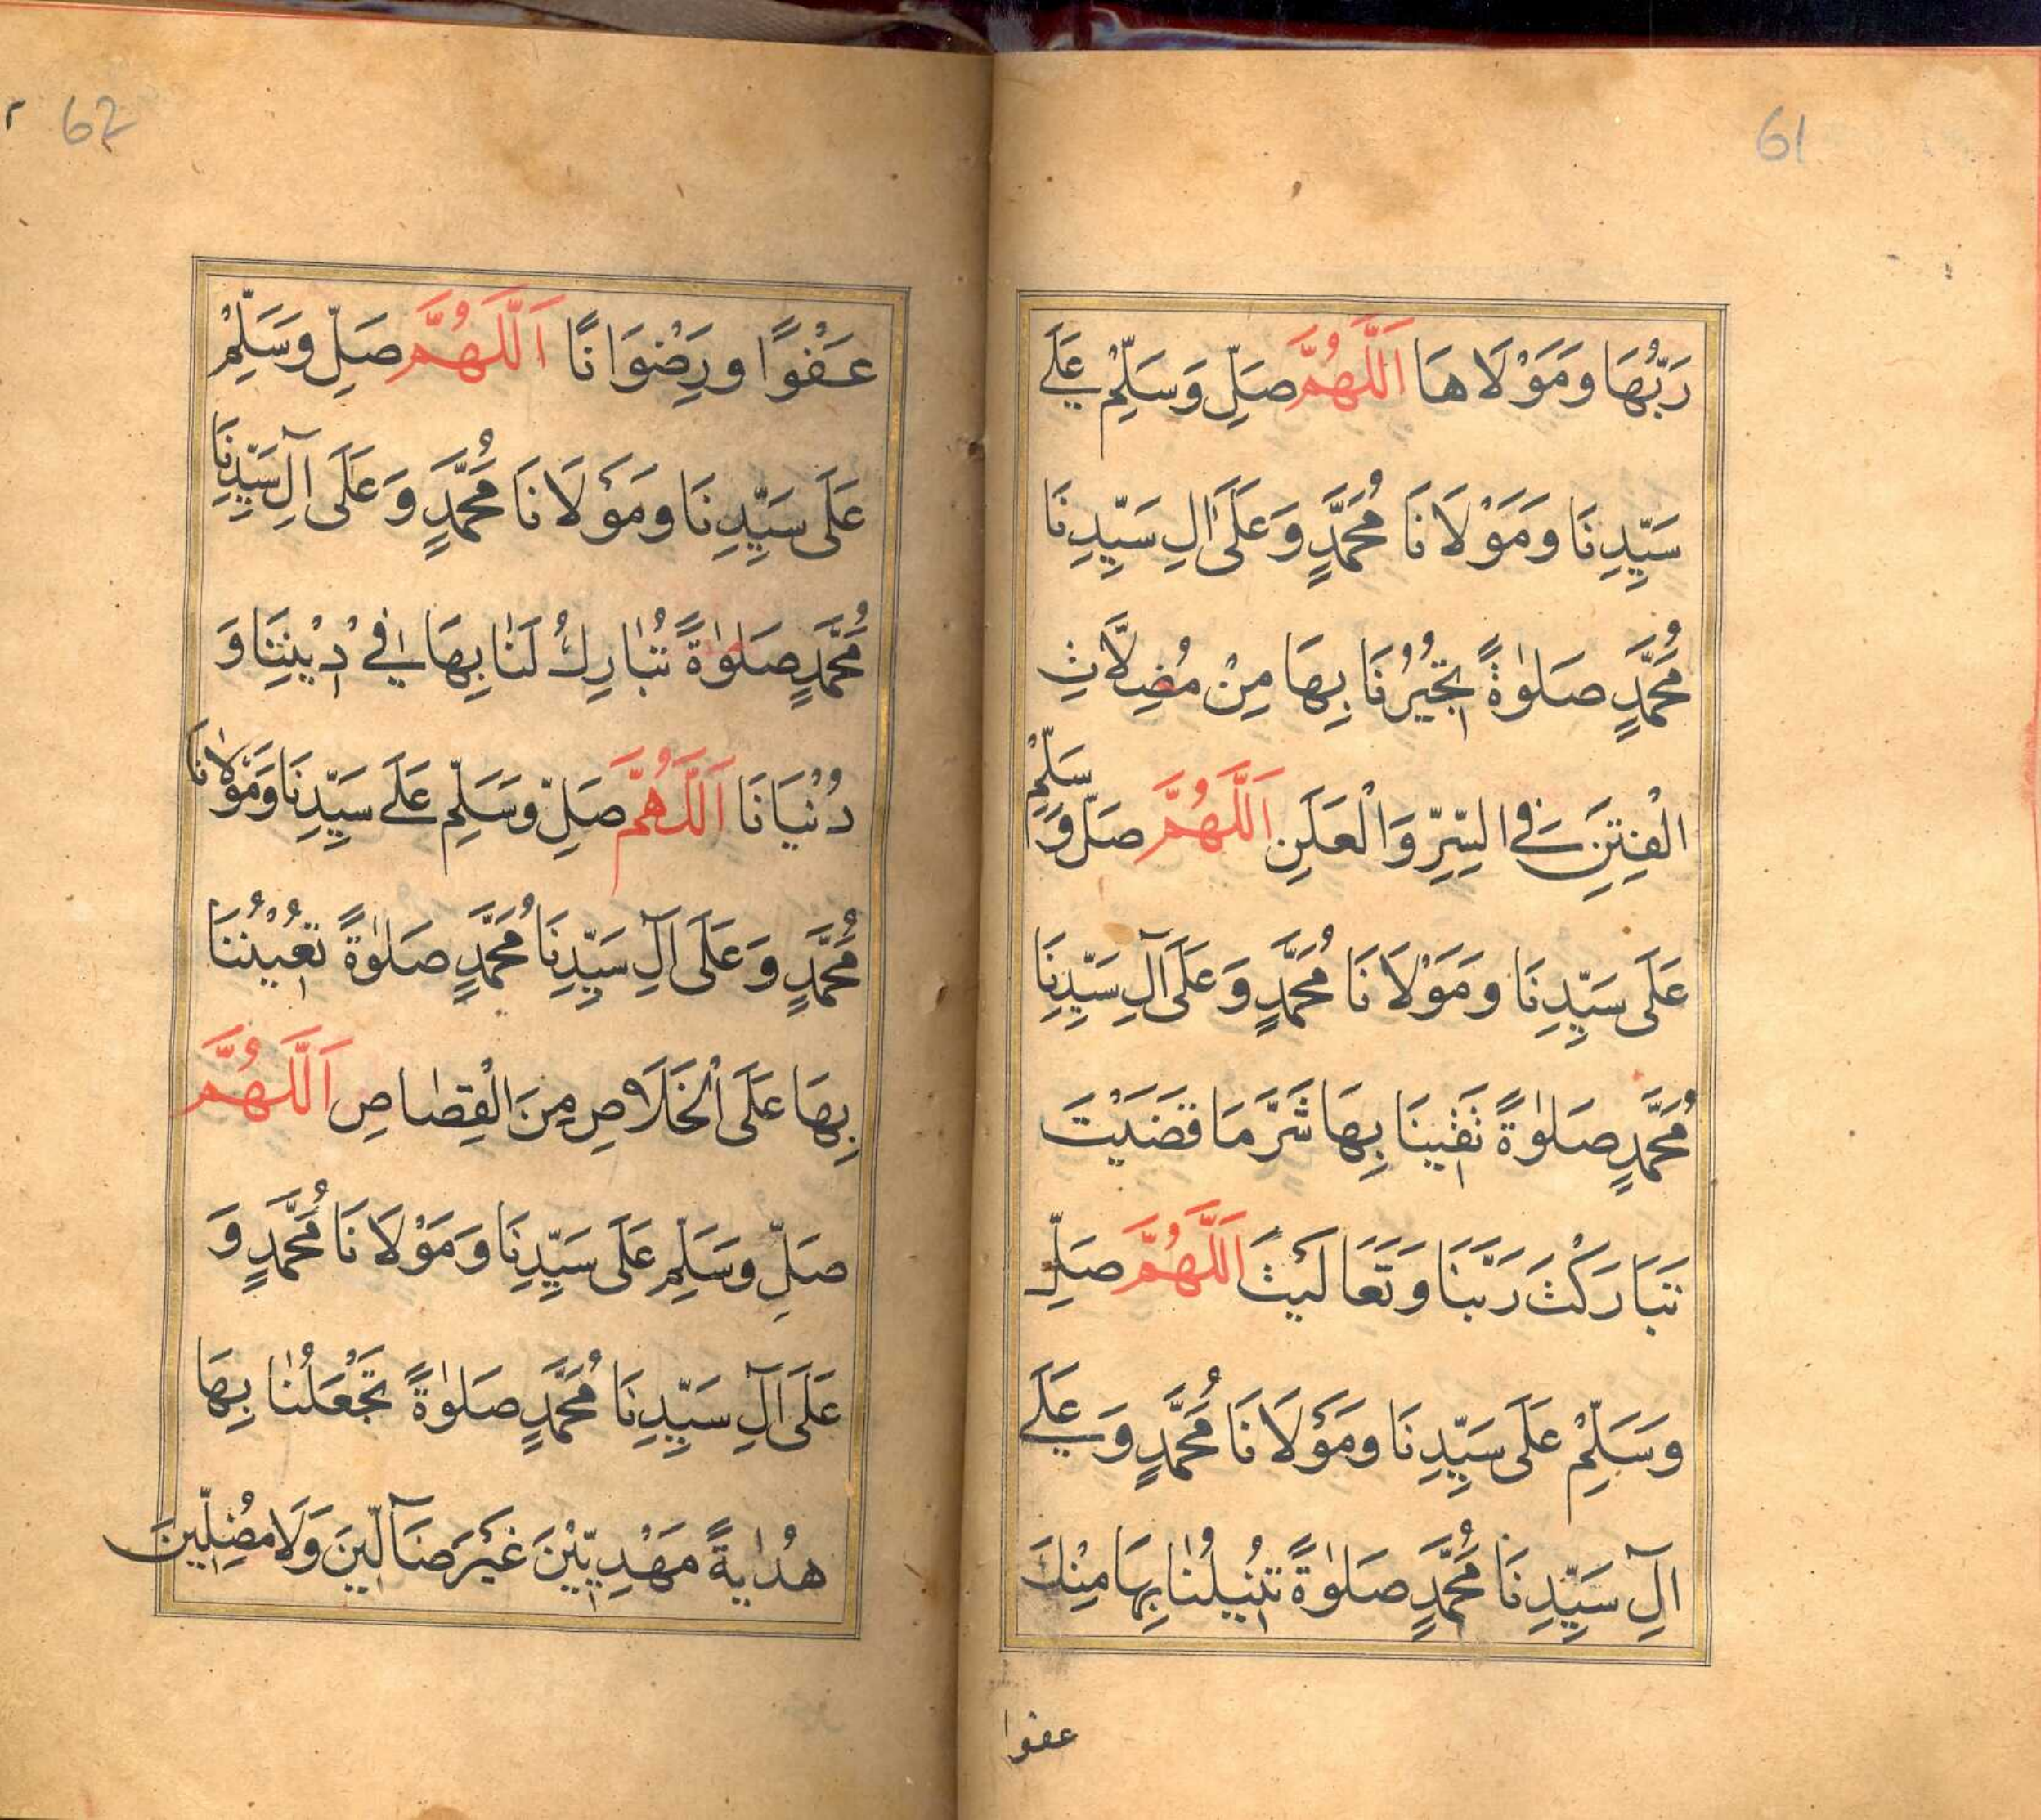 61
رَبُّهَا وَمَوْلَاهَا اَللّٰهُمَّ صَلِّ وَسَلِّمْ عَلٰى
سَيِّدِنَا وَمَوْلَانَا مُحَمَّدٍ وَعَلَى اٰلِ سَيِّدِنَا
مُحَمَّدٍ صَلٰوةً تُجِيْرُنَا بِهَا مِنْ مُضِلَّاتِ
الْفِتَنِ فِي السِّرِّ وَالْعَلَنِ اَللّٰهُمَّ صَلِّ وَسَلِّمْ
عَلَى سَيِّدِنَا وَمَوْلَانَا مُحَمَّدٍ وَعَلَى آلِ سَيِّدِنَا
مُحَمَّدٍ صَلٰوةً تَقِيْنَا بِهَا شَرَّ مَا قَضَيْتَ
تَبَارَكْتَ رَبَّنَا وَتَعَالَيْتَ اَللّٰهُمَّ صَلِّ
وَسَلِّمْ عَلَى سَيِّدِنَا وَمَوْلَانَا مُحَمَّدٍ وَعَلٰى
آلِ سَيِّدِنَا مُحَمَّدٍ صَلٰوةً تُنِيلُنَا بِهَا مِنْكَ
عفوا
62
عَفْوًا وَرِضْوَانًا اَللّٰهُمَّ صَلِّ وَسَلِّمْ
عَلَى سَيِّدِنَا وَمَوْلَانَا مُحَمَّدٍ وَعَلَى آلِ سَيِّدِنَا
مُحَمَّدٍ صَلٰوةً تُبَارِكُ لَنَا بِهَا فِي دِيْنِنَا وَ
دُنْيَانَا اَللّٰهُمَّ صَلِّ وَسَلِّمْ عَلٰى سَيِّدِنَا وَمَوْلَانَا
مُحَمَّدٍ وَعَلَى آلِ سَيِّدِنَا مُحَمَّدٍ صَلٰوةً تُعِيْنُنَا
بِهَا عَلَى الْخَلَاصِ مِنَ الْقِصَاصِ اَللّٰهُمَّ
صَلِّ وَسَلِّمْ عَلَى سَيِّدِنَا وَمَوْلَانَا مُحَمَّدٍ وَ
عَلَى آلِ سَيِّدِنَا مُحَمَّدٍ صَلٰوةً تَجْعَلُنَا بِهَا
هُدَايَةً مَهْدِيِّيْنَ غَيْرَ ضَآلِّيْنَ وَلَا مُضِلِّيْنَ